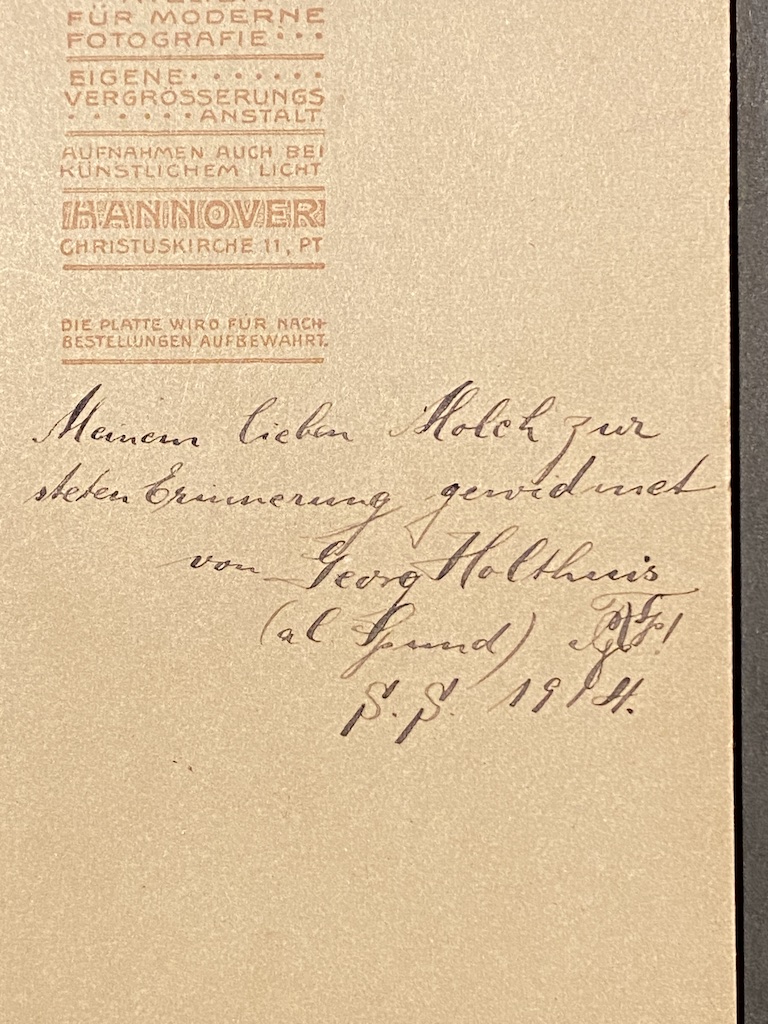 FÜR MODERNE
FOTOGRAFIE • • •
EIGENE • • • • • • •
VERGRÖSSERUNGS
• • • • • • ANSTALT.
AUFNAHMEN AUCH BEI
KÜNSTLICHEM LICHT
HANNOVER
CHRISTUSKIRCHE 11, PT
DIE PLATTE WIRD FÜR NACH-
BESTELLUNGEN AUFBEWAHRT.
Meinem lieben Molch zur
steten Erinnerung gewidmet
von Georg Holthuis
(al Spund)
S. S. 1914.